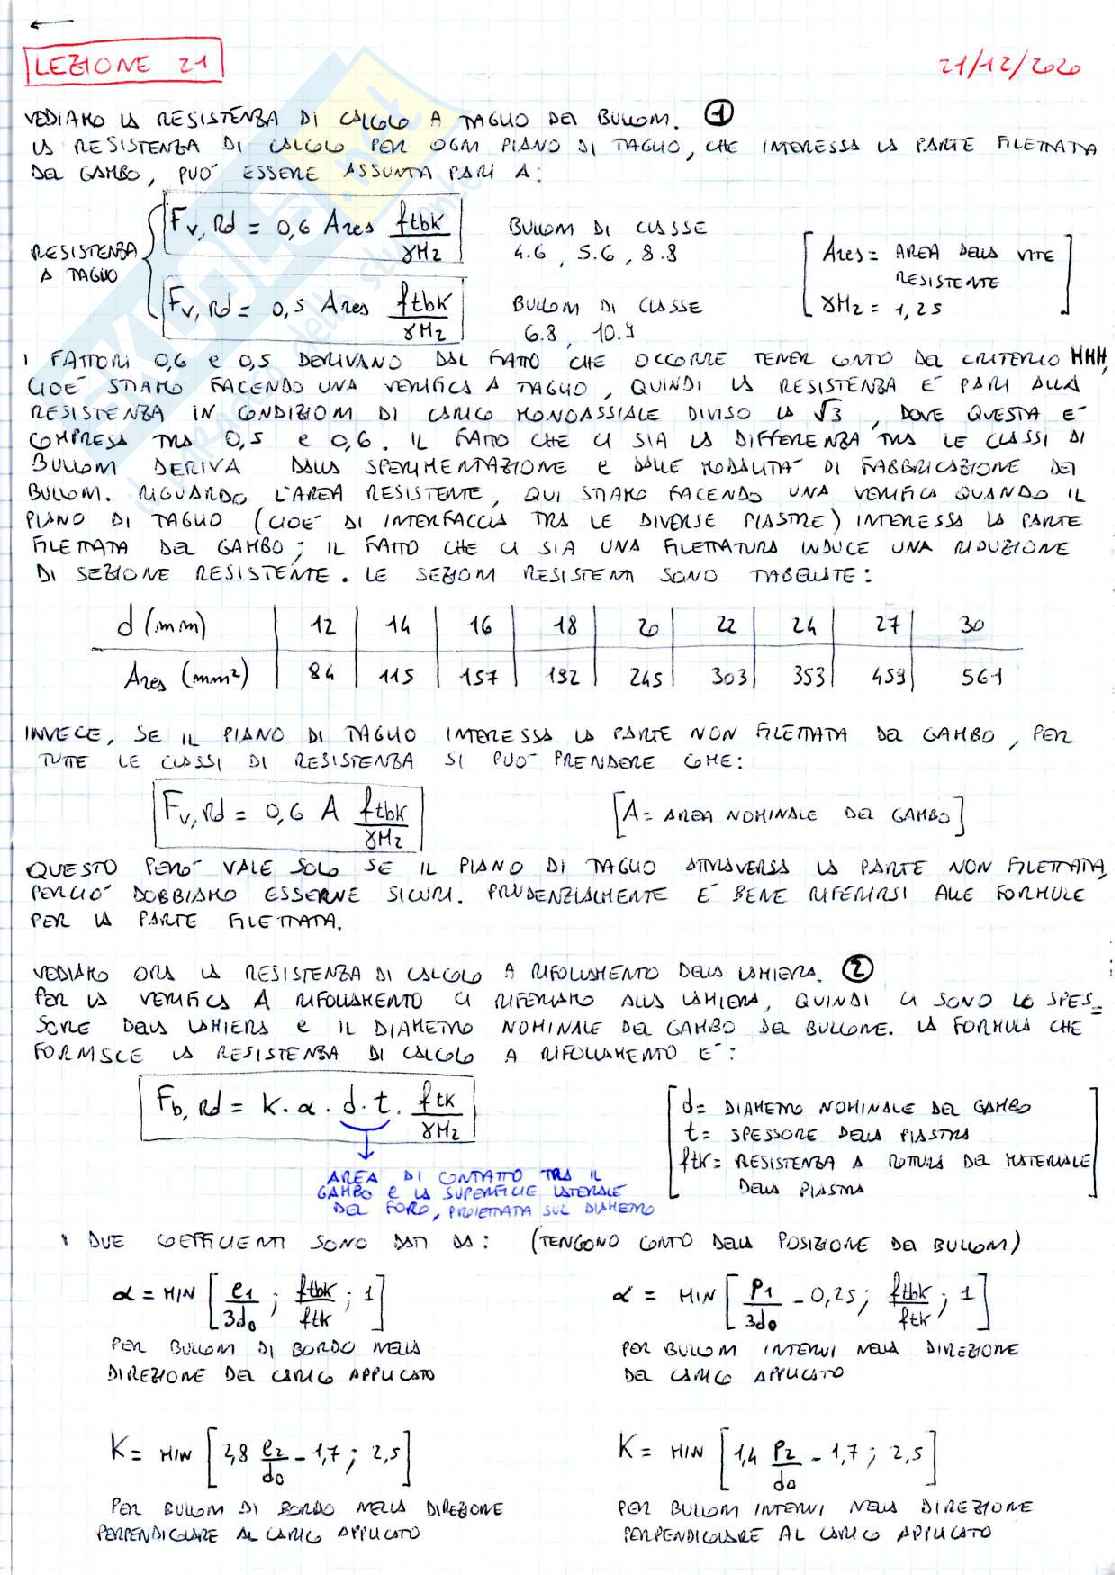 LEZIONE 21
21/12/2020
VEDIAMO LA RESISTENZA DI CALCOLO A TAGLIO DEI BULLONI. 1
LA RESISTENZA DI CALCOLO PER OGNI PIANO DI TAGLIO, CHE INTERESSA LA PARTE FILETTATA
DEL GAMBO, PUO' ESSERE ASSUNTA PARI A:
RESISTENZA A TAGLIO
Fv,Rd = 0,6 Ares ftbk/γM2
BULLONI DI CLASSE
4.6, 5.6, 8.8
Fv,Rd = 0,5 Ares ftbk/γM2
BULLONI DI CLASSE
6.8, 10.9
[Ares = AREA DELLA VITE
RESISTENTE
γM2 = 1,25]
I FATTORI 0,6 e 0,5 DERIVANO DAL FATTO CHE OCCORRE TENER CONTO DEL CRITERIO HHH,
CIOE' STIAMO FACENDO UNA VERIFICA A TAGLIO, QUINDI LA RESISTENZA E' PARI ALLA
RESISTENZA IN CONDIZIONI DI CARICO MONOASSIALE DIVISO LA √3, DOVE QUESTA E'
COMPRESA TRA 0,5 e 0,6. IL FATTO CHE CI SIA LA DIFFERENZA TRA LE CLASSI DI
BULLONI DERIVA DALLA SPERIMENTAZIONE e DALLE MODALITA' DI FABBRICAZIONE DEI
BULLONI. RIGUARDO L'AREA RESISTENTE, QUI STIAMO FACENDO UNA VERIFICA QUANDO IL
PIANO DI TAGLIO (CIOE' DI INTERFACCIA TRA LE DIVERSE PIASTRE) INTERESSA LA PARTE
FILETTATA DEL GAMBO; IL FATTO CHE CI SIA UNA FILETTATURA INDUCE UNA RIDUZIONE
DI SEZIONE RESISTENTE. LE SEZIONI RESISTENTI SONO TABELLATE:
d (mm) 12 14 16 18 20 22 24 27 30
Ares (mm²) 84 115 157 192 245 303 353 459 561
INVECE, SE IL PIANO DI TAGLIO INTERESSA LA PARTE NON FILETTATA DEL GAMBO, PER
TUTTE LE CLASSI DI RESISTENZA SI PUO' PRENDERE COME:
Fv,Rd = 0,6 A ftbk/γM2
[A = AREA NOMINALE DEL GAMBO]
QUESTO PERO' VALE SOLO SE IL PIANO DI TAGLIO ATTRAVERSA LA PARTE NON FILETTATA,
PERCIO' DOBBIAMO ESSERNE SICURI. PRUDENZIALMENTE E' BENE RIFERIRSI ALLE FORMULE
PER LA PARTE FILETTATA.
VEDIAMO ORA LA RESISTENZA DI CALCOLO A RIFOLLAMENTO DELLA LAMIERA. 2
PER LA VERIFICA A RIFOLLAMENTO CI RIFERIAMO ALLA LAMIERA, QUINDI CI SONO LO SPES-
SORE DELLA LAMIERA e IL DIAMETRO NOMINALE DEL GAMBO DEL BULLONE. LA FORMULA CHE
FORNISCE LA RESISTENZA DI CALCOLO A RIFOLLAMENTO E':
Fb,Rd = K · α · d · t · ftk/γM2
[d = DIAMETRO NOMINALE DEL GAMBO
t = SPESSORE DELLA PIASTRA
ftk = RESISTENZA A ROTTURA DEL MATERIALE
DELLA PIASTRA]
AREA DI CONTATTO TRA IL
GAMBO e LA SUPERFICIE LATERALE
DEL FORO, PROIETTATA SUL DIAMETRO
I DUE COEFFICIENTI SONO DATI DA: (TENGONO CONTO DELLA POSIZIONE DEI BULLONI)
α = MIN [e1/3d0 ; ftbk/ftk ; 1]
PER BULLONI DI BORDO NELLA
DIREZIONE DEL CARICO APPLICATO
α = MIN [P1/3d0 - 0,25 ; ftbk/ftk ; 1]
PER BULLONI INTERNI NELLA DIREZIONE
DEL CARICO APPLICATO
K = MIN [2,8 e2/d0 - 1,7 ; 2,5]
PER BULLONI DI BORDO NELLA DIREZIONE
PERPENDICOLARE AL CARICO APPLICATO
K = MIN [1,4 P2/d0 - 1,7 ; 2,5]
PER BULLONI INTERNI NELLA DIREZIONE
PERPENDICOLARE AL CARICO APPLICATO